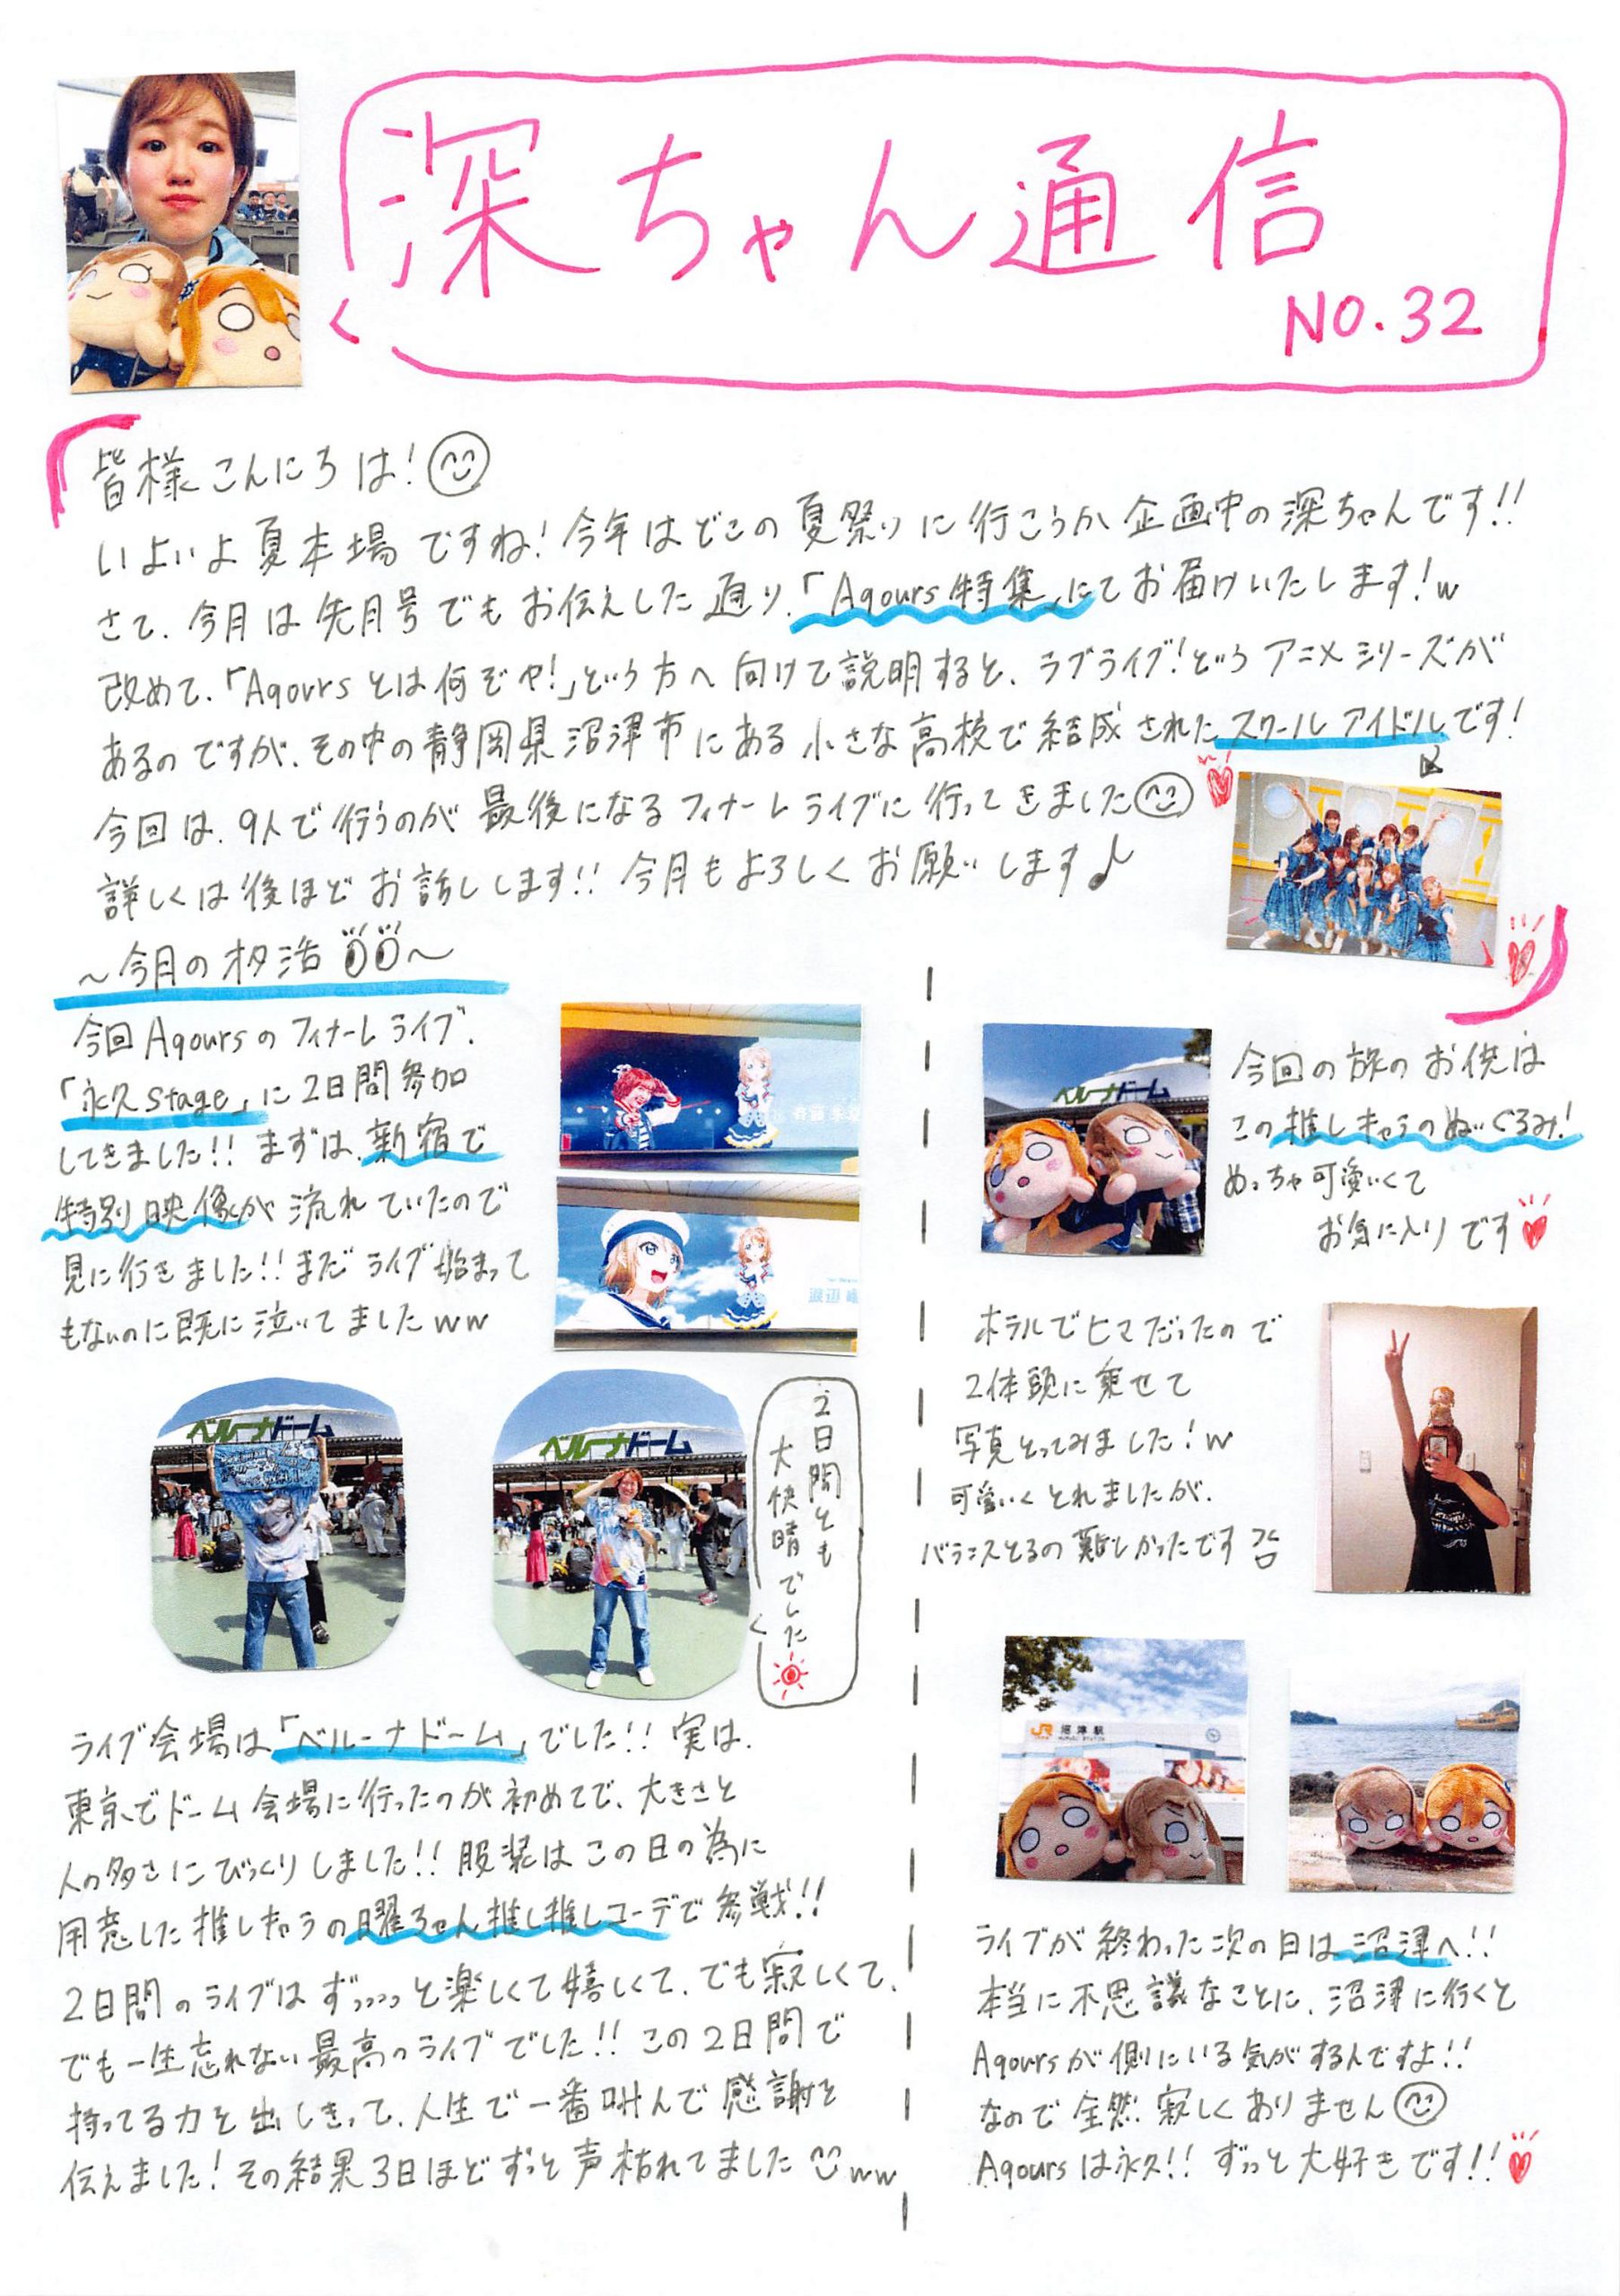 深ちゃん通信
NO.32
皆様こんにちは!
いよいよ夏本場ですね!今年はどこの夏祭りに行こうか企画中の深ちゃんです!!
さて、今月は先月号でもお伝えした通り、「Aqours特集」にてお届けいたします!w
改めて、「Aqoursとは何ぞや!」という方へ向けて説明すると、ラブライブ!というアニメシリーズが
あるのですが、その中の静岡県沼津市にある小さな高校で結成されたスクールアイドルです!
今回は、9人で行うのが最後になるフィナーレライブに行ってきました
詳しくは後ほどお話しします!!今月もよろしくお願いします♪
～今月のオタ活～
今回Aqoursのフィナーレライブ、
「永久stage」に2日間参加
してきました!!まずは、新宿で
特別映像が流れていたので
見に行きました!!まだライブ始まって
もないのに既に泣いてましたww
渡辺曜
ベルーナドーム
ベルーナドーム
2日間とも
大快晴でした
ライブ会場は「ベルーナドーム」でした!!実は、
東京でドーム会場に行ったのが初めてで、大きさと
人の多さにびっくりしました!!服装はこの日の為に
用意した推しキャラの曜ちゃん推し推しコーデで参戦!!
2日間のライブはずっっっっと楽しくて嬉しくて、でも寂しくて、
でも一生忘れない最高のライブでした!!この2日間で
持ってる力を出しきって、人生で一番叫んで感謝を
伝えました!その結果3日ほどずっと声枯れてましたww
ベルーナドーム
今回の旅のお供は
この推しキャラのぬいぐるみ!
めっちゃ可愛いくて
お気に入りです
ホテルでヒマだったので
2体頭に乗せて
写真とってみました!w
可愛いくとれましたが、
バランスとるの難しかったです
JR 沼津駅
NUMAZU STATION
ライブが終わった次の日は沼津へ!!
本当に不思議なことに、沼津に行くと
Aqoursが側にいる気がするんですよ!!
なので全然寂しくありません
Aqoursは永久!!ずっと大好きです!!